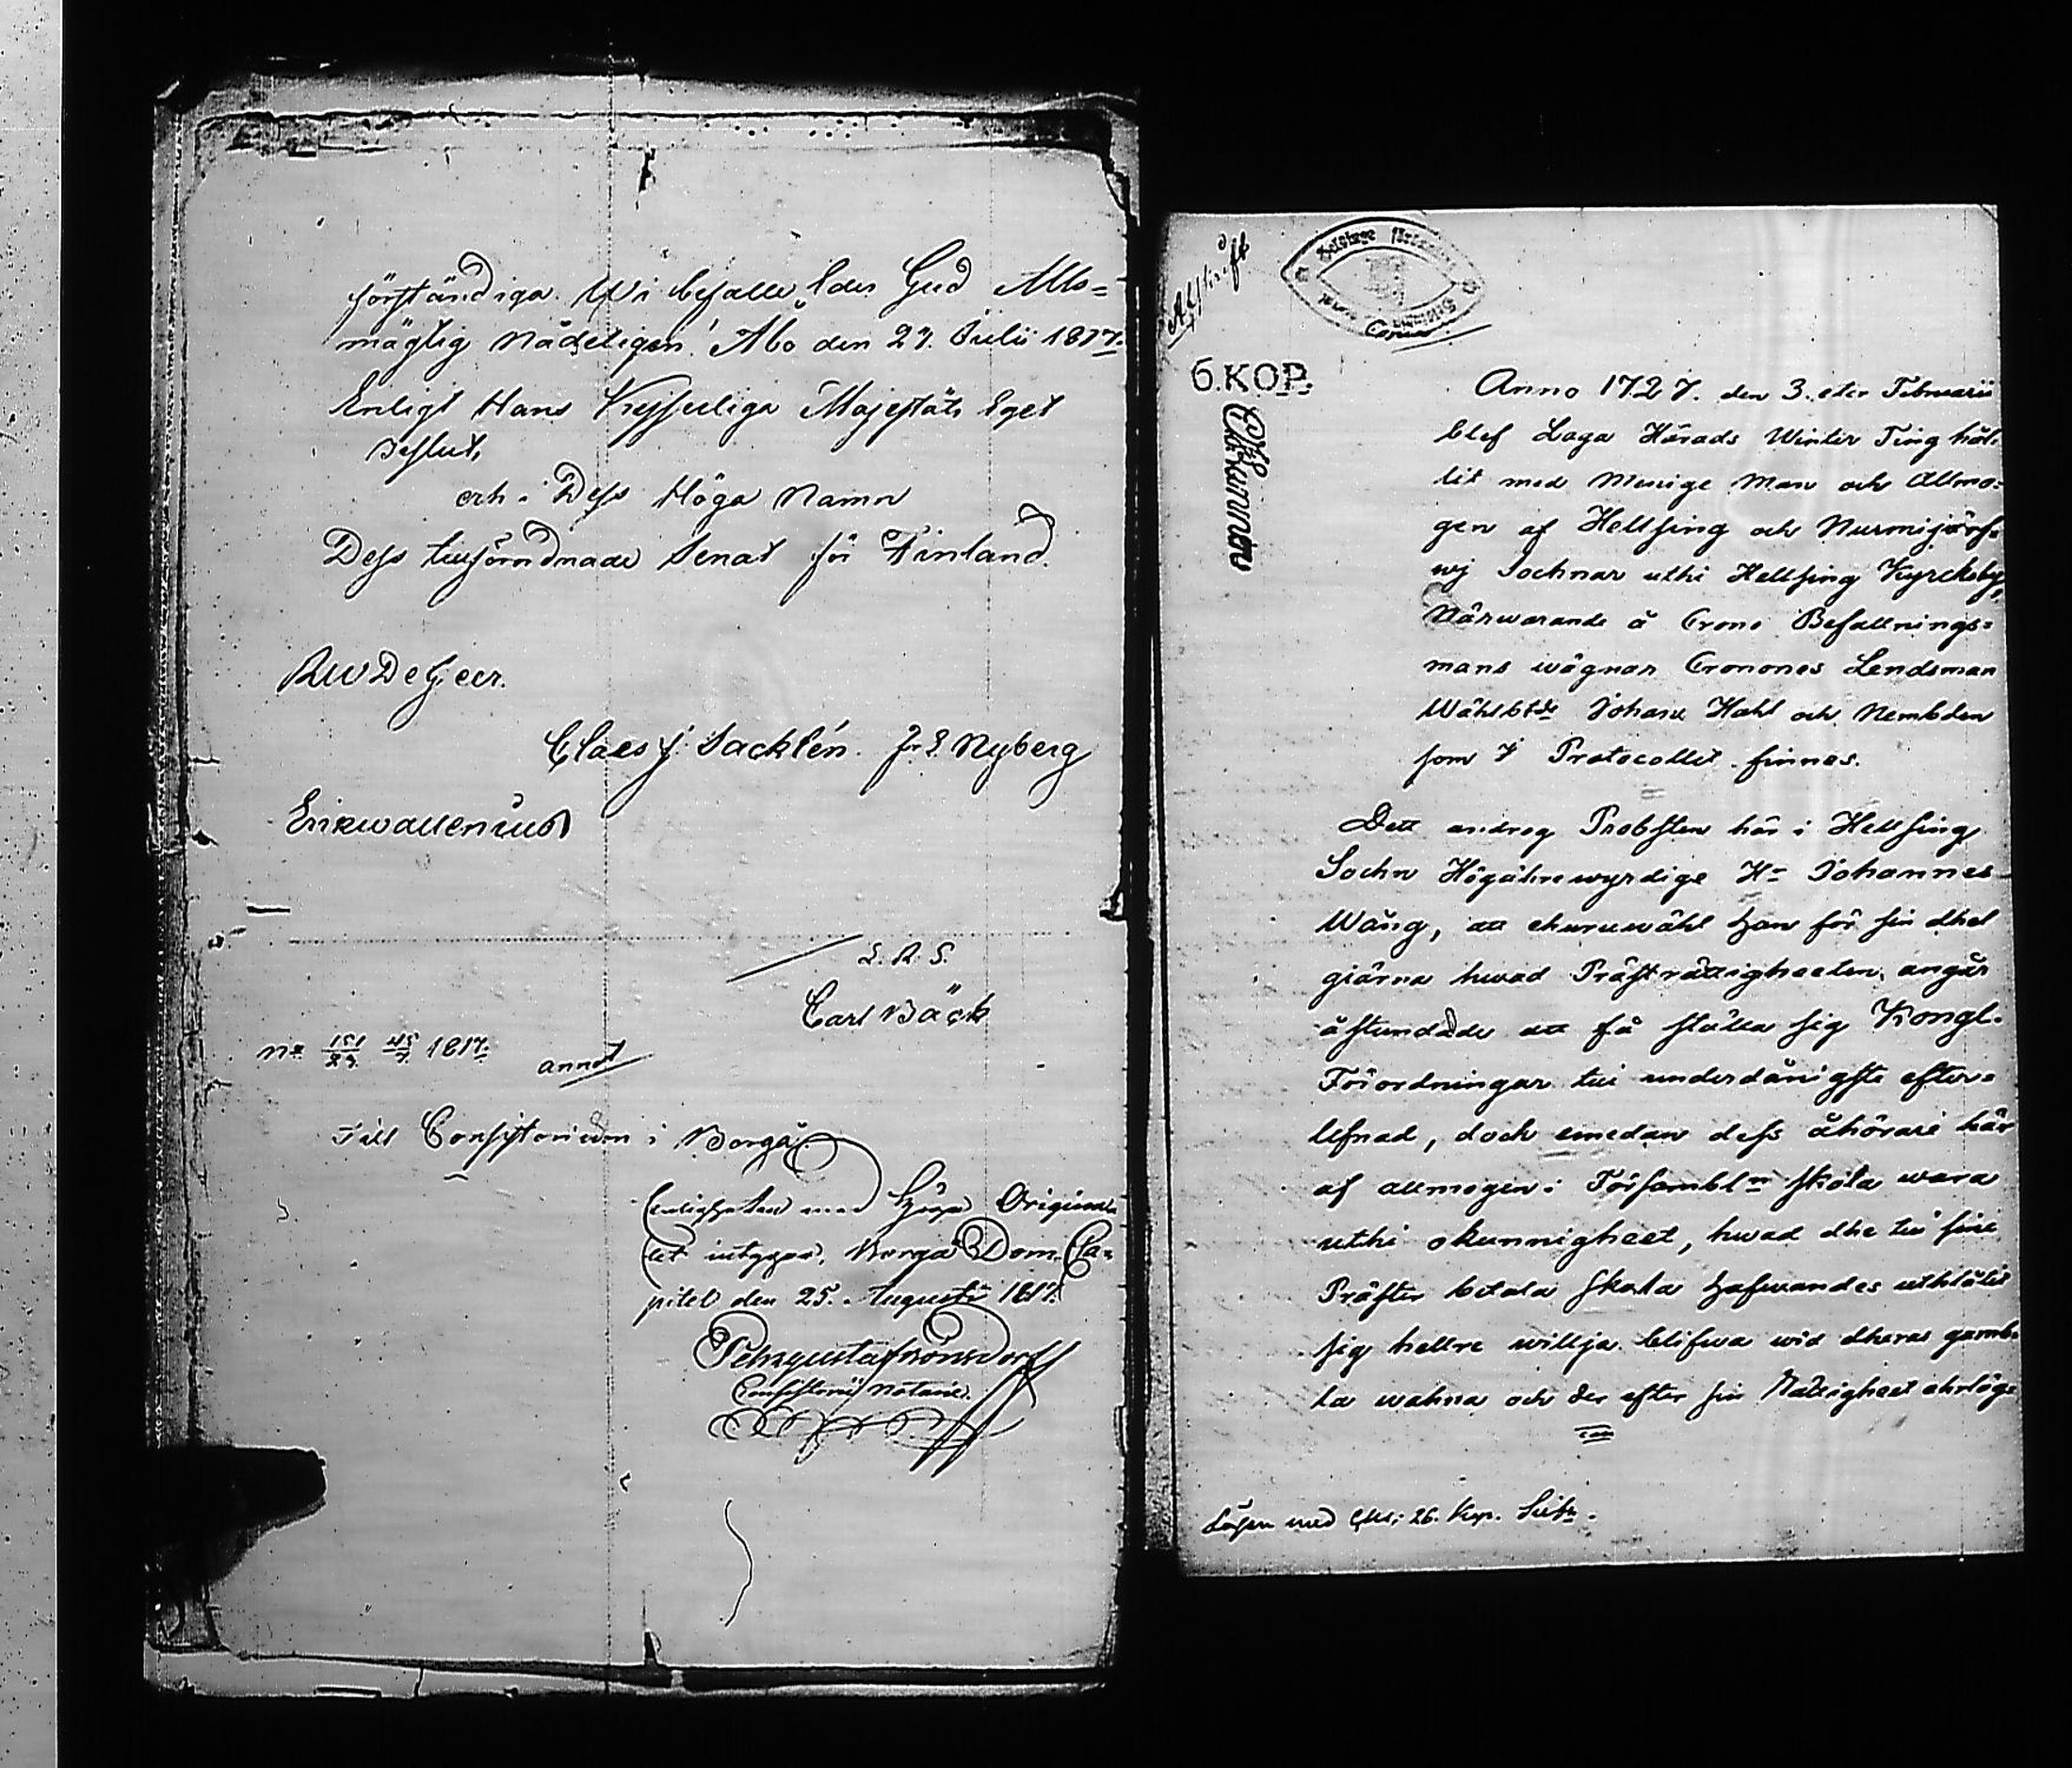 förständiga. Wi befalle Eder Gud Alls=
mägtig Nådeligen! Åbo den 27. Julii 1817.
Enligt Hans Kejserliga Majestäts Eget
Beslut,
och i Dess Höga Namn
Dess tillförordnade Senat för Finland.
RWDeGeer.
Claes J. Sacklén. J. E. Nyberg
Erikwallenius
L. R. S.
Carl Bäck
No 151/29. 45/7. 1817. annot
Till Consistorium i Borgå.
Enligheten med höga Origina-
let intygar, Borgå Dom Ca-
pitel den 25. Augusti 1817.
Consistorii Notarie.
Afskrift
6.KOP.
Anno 1727. den 3. Februarii
blef Laga Härads Winter Ting hål-
lit med Menige Man och Allmo-
gen af Hellsing och Nurmijärf-
wj Sochnar uthi Hellsing Kyrckoby,
Närwarande å Crono Befallnings-
mans wägnar Cronones Lendsman
Wählbtde Johan Hahl och Nembden
som i Protocollet finnes.
Dett androg Probsten här i Hellsing
Sochn Högährewyrdige Hr Johannes
Wång, att ehuruwähl han för sin dhel
giärna hwad Prästrättigheeten angår
åstundade att få ställa sig Kongl.
Förordningar till underdånigste efter-
lefnad, doch emedan dess åhörare här
af allmogen i Församblln skola wara
uthi okunnigheet, hwad dhe till sine
Präster betala skola hafwandes uthlåtit
sig hellre willja blifwa wid dheras gamb-
la wahna och der efter sin Rättigheet ehrläg-
Lösen med 26. Kop. Silfr.